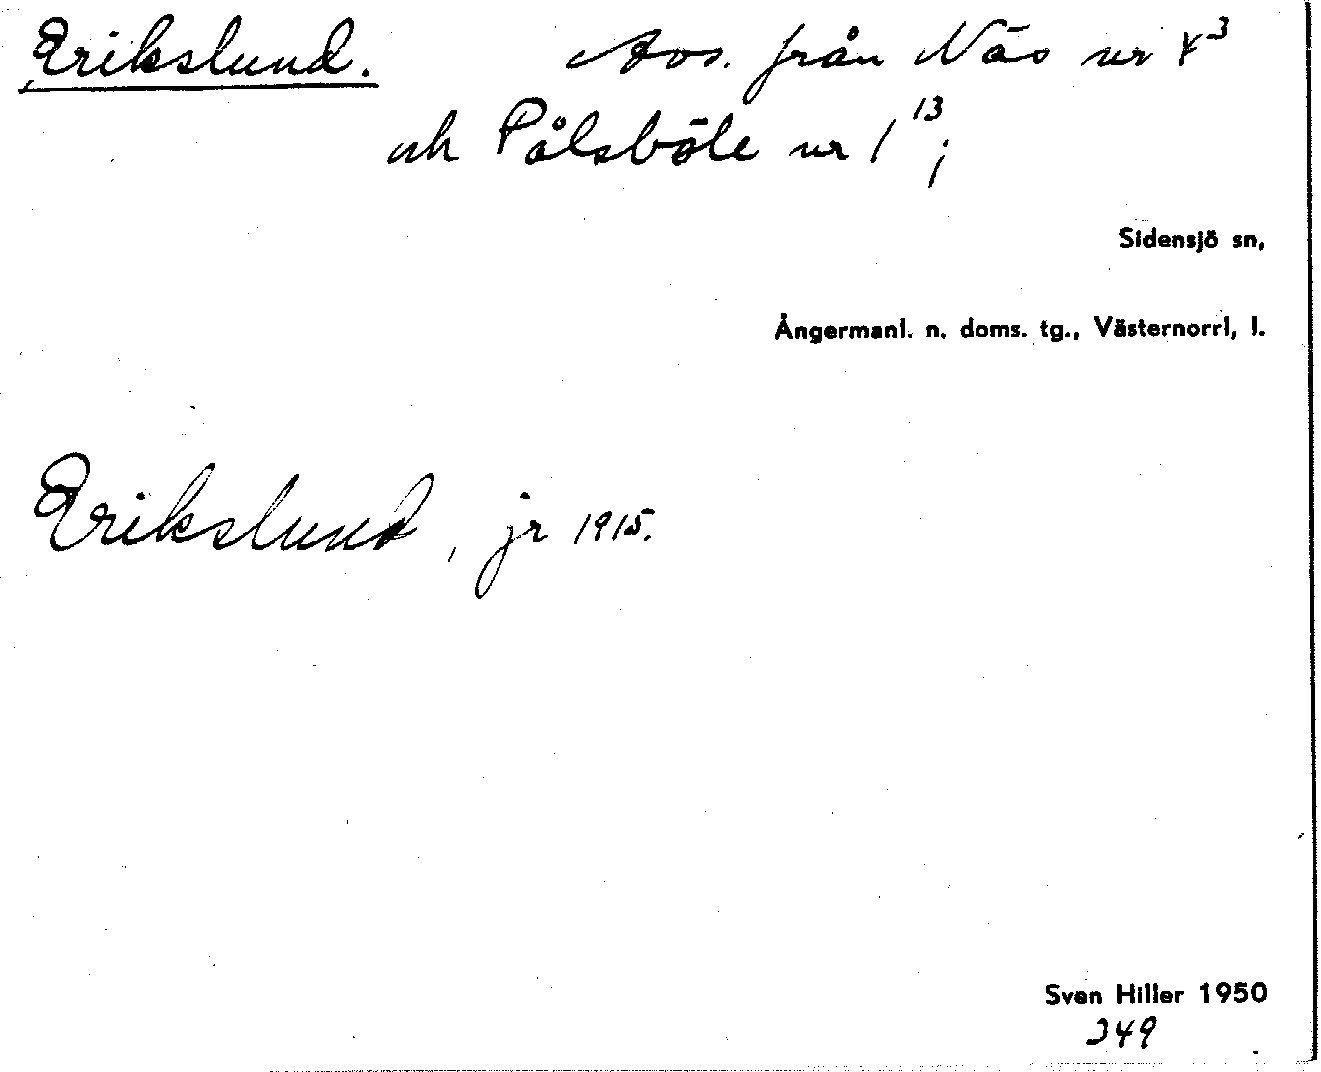 Erikslund. Avs. från Näs nr 4³
och Pålsböle nr 1¹³;
Sidensjö sn,
Ångermanl. n. doms. tg., Västernorrl, l.
Erikslund, jr 1915.
Sven Hiller 1950
349